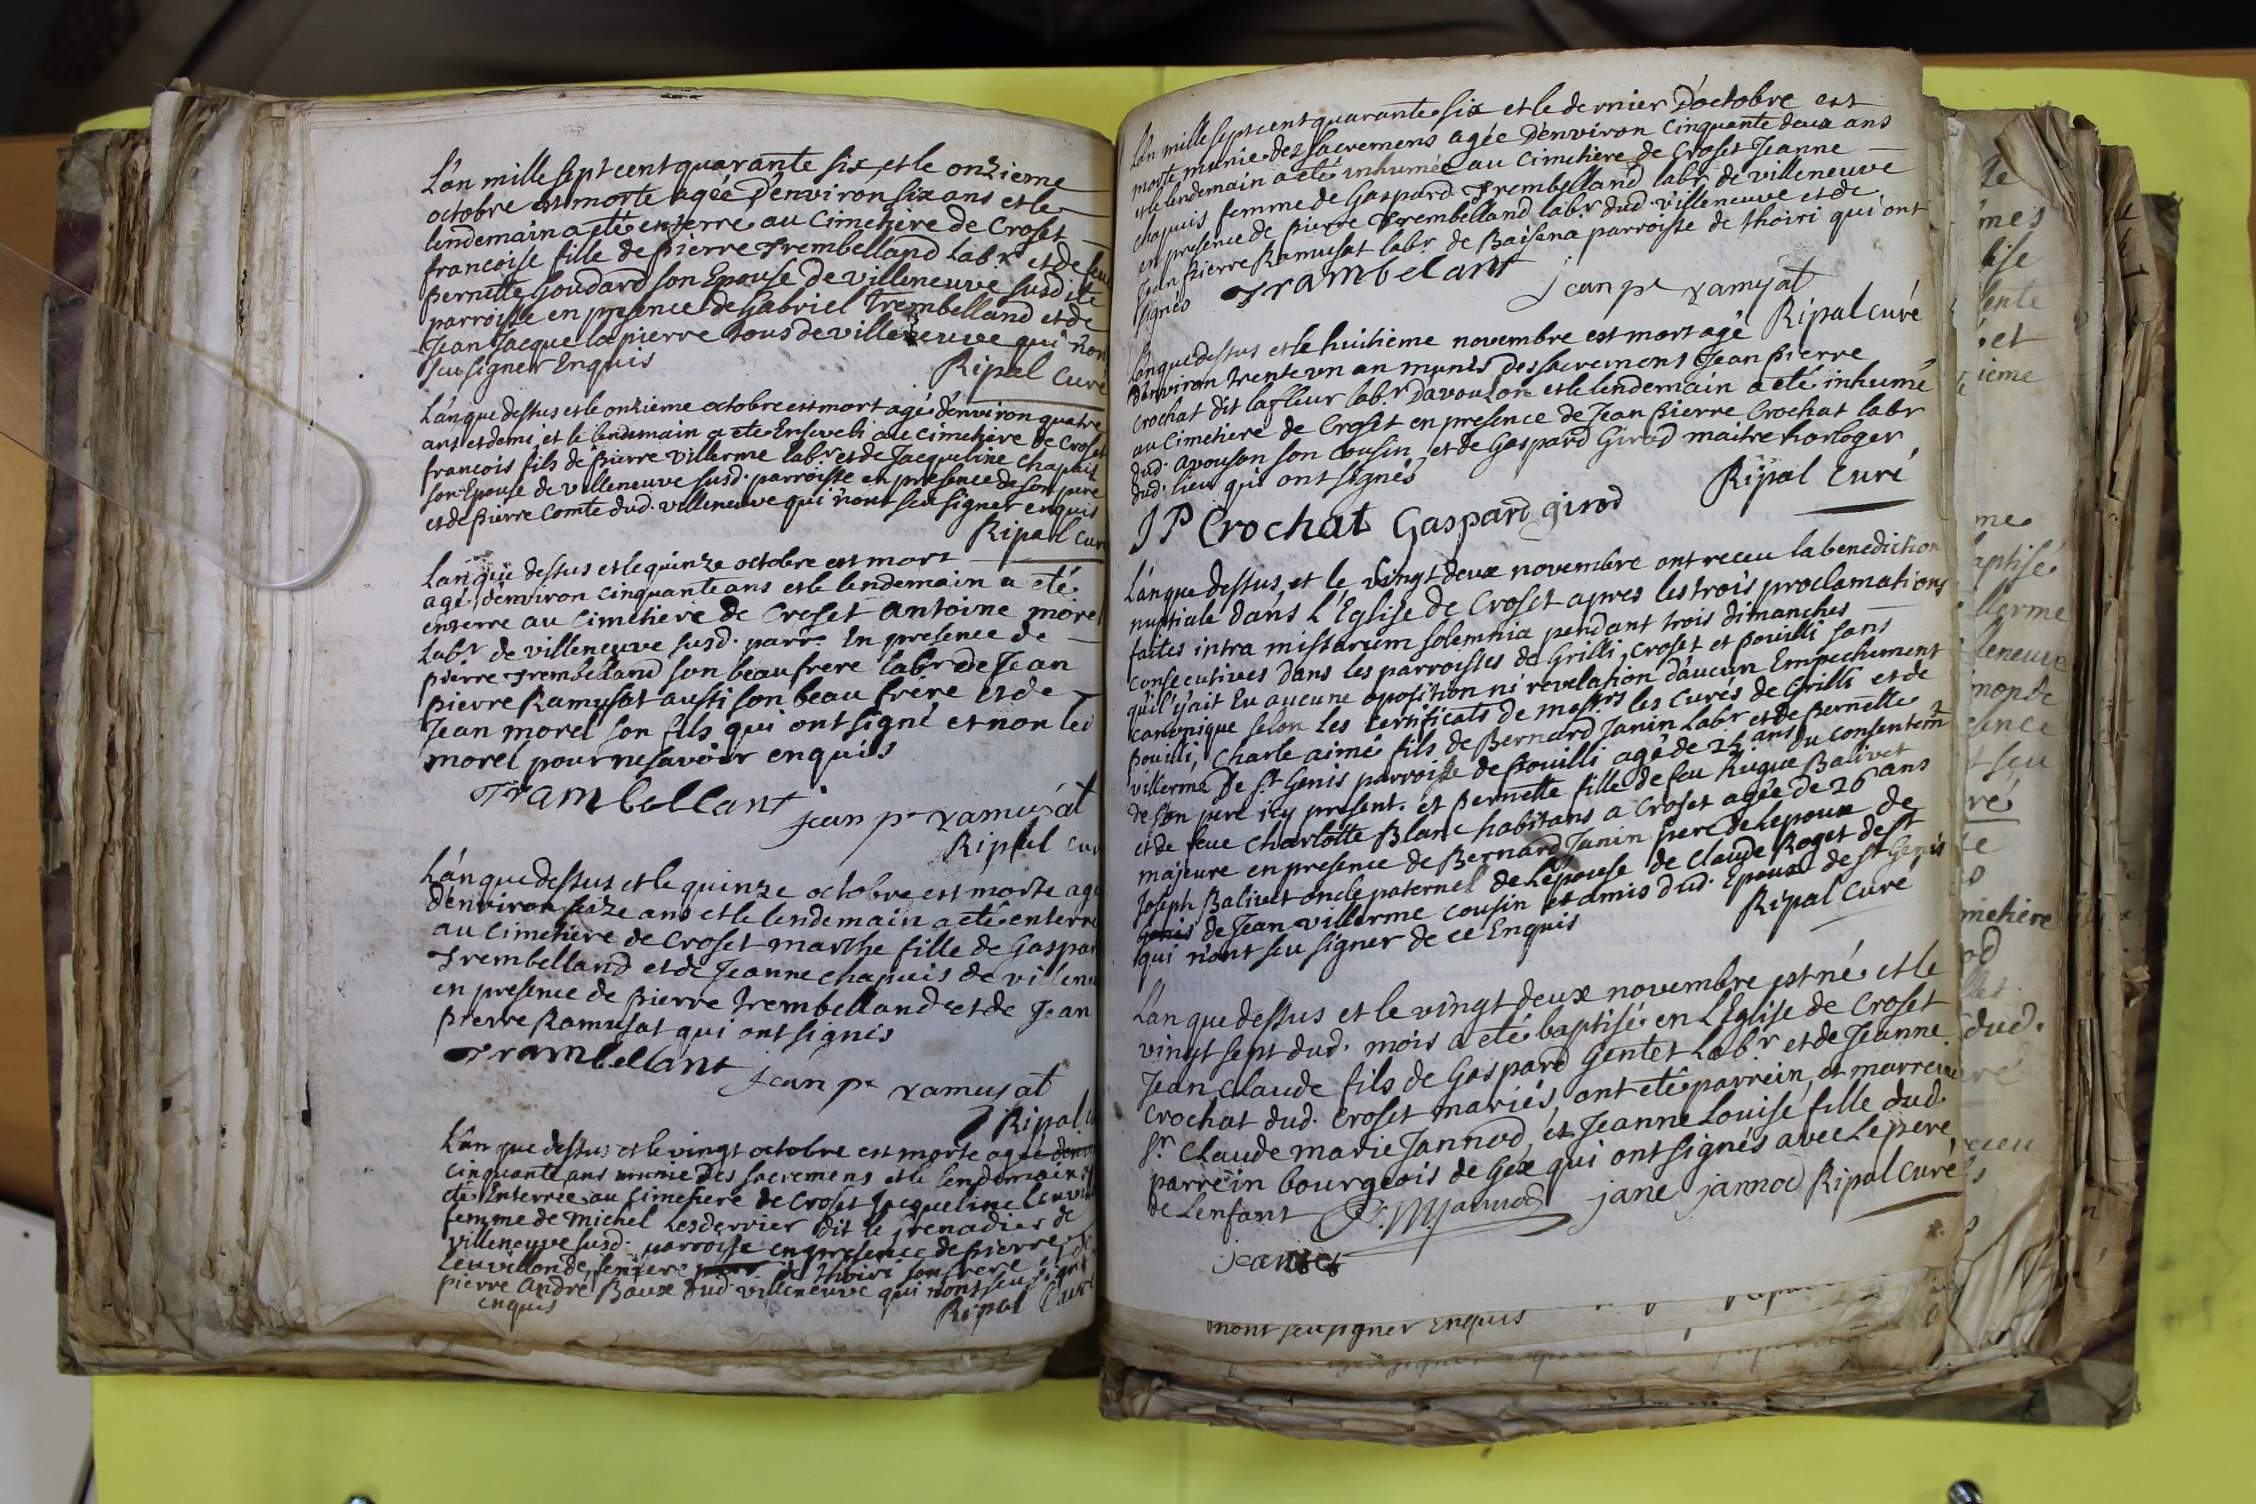 L'an mille sept cent quarante six et le onzieme
octobre est morte agée d'environ six ans et le
lendemain a eté enterre au Cimetiere de Croset
francoise fille de pierre Trembelland Lab.r et de feue
pernette Goudard son Epouse de villeneuve susdite
parroisse en presence de Gabriel Trembelland et de
Jean Jacque lapierre tous de villeneuve qui n'ont
sçu signer Enquis
Ripal curé
L'an que dessus et le onzieme octobre est mort agé d'environ quatre
ans et demi, et le lendemain a eté Enseveli au Cimetiere de Croset
francois fils de pierre villerme lab.r et de Jacqueline Chapuis
son Epouse de villeneuve susd. parroisse en presence de son pere
et de pierre Comte dud. villeneuve qui n'ont sçu signer enquis
Ripal curé
L'an que dessus et le quinze octobre est mort
agé d'environ cinquante ans et le lendemain a eté
enterre au Cimetiere de Croset antoine morel
Lab.r de villeneuve susd. parr.e En presence de
pierre Trembelland son beaufrere lab.r de Jean
pierre Ramusat aussi son beau frére et de
Jean morel son fils qui ont signé et non led
morel pour ne savoir enquis
Trambellant jean p.re ramusat
Ripal cur
L'an que dessus et le quinze octobre est morte agé
d'environ seize ans et le lendemain a eté enterre
au Cimetiere de Croset marthe fille de Gaspar
Trembelland et de Jeanne chapuis de villene
en presence de pierre trembelland et de Jean
pierre Ramusat qui ont signés
Trambellant jean p.re ramusat
Ripal
L'an que dessus et le vingt octobre est morte agé d'envi
Cinquante ans munie des sacremens et le lendemain a
eté Enterrée au Cimetiere de Croset Jacqueline
femme de michel Lesdervier dit le grenadier de
villeneuve susd. parroisse en presence de pierre
de thoiri son frere et de
pierre André Baux dud. villeneuve qui n'ont seu signer
enquis
Ripal Curé
L'an mille sept cent quarante six et le dernier d'octobre est
morte munie des sacremens agée d'environ cinquante deux ans
et le lendemain a eté inhumée au Cimetiere de Croset Jeanne
chapuis femme de Gaspard Trembelland lab.r de villeneuve
en presence de pierre Trembelland lab.r dud. villeneuve et de
Jean pierre Ramusat lab.r de Baisena parroisse de thoiri qui ont
signés
Trambelant jean p.r ramusat
Ripal curé
L'an que dessus et le huitieme novembre est mort agé
d'environ trente un an munis des sacremens Jean pierre
Crochat dit lafleur lab.r d'avouzon et le lendemain a eté inhumé
au Cimetiere de Croset en presence de Jean pierre Crochat labr
dud. avouson son Cousin, et de Gaspard Girod maitre horloger
dud. lieu qui ont signés
Ripal Curé
J P Crochat Gaspard girod
L'an que dessus et le vingt deux novembre ont receu la benediction
nuptiale dans L'Eglise de Croset apres les trois proclamations
faites intra missarum solemnia pendant trois dimanches
consecutives dans les parroisses de Grilli, Croset et pouilli sans
qu'il y ait Eu aucune oposition ni revelation d'aucun Empechement
canonique selon les certificats de mess.rs les Curés de Grilli et de
pouilli, Charle aimé fils de Bernard Janin Lab.r et de pernette
villerme de s.t Genis parroisse de pouilli agé de 24 ans du consentem.t
de son pere icy present. et pernette fille de feu hugue Balivet
et de feue Charlotte Blanc habitans a Croset agée de 26 ans
majeure en presence de Bernard Janin pere de L'epoux de
Joseph Balivet oncle paternel de L'épouse de Claude Roget de s.t
genis de Jean villerme cousin et amis dud. Epoux de s.t Genis
qui n'ont seu signer de ce Enquis
Ripal Curé
L'an que dessus et le vingt deux novembre est né et le
vingt sept dud. mois a eté baptisé en L'Eglise de Croset
Jean Claude fils de Gaspard Gentet Lab.r et de Jeanne
Crochat dud. Croset mariés, ont eté parrein, et marreine
S.r Claude marie Jannod, et Jeanne Louise fille dud.
parrein bourgeois de Gex qui ont signés avec le pere
de L'enfant jane jannod Ripal Curé
n'ont seu signer Enquis